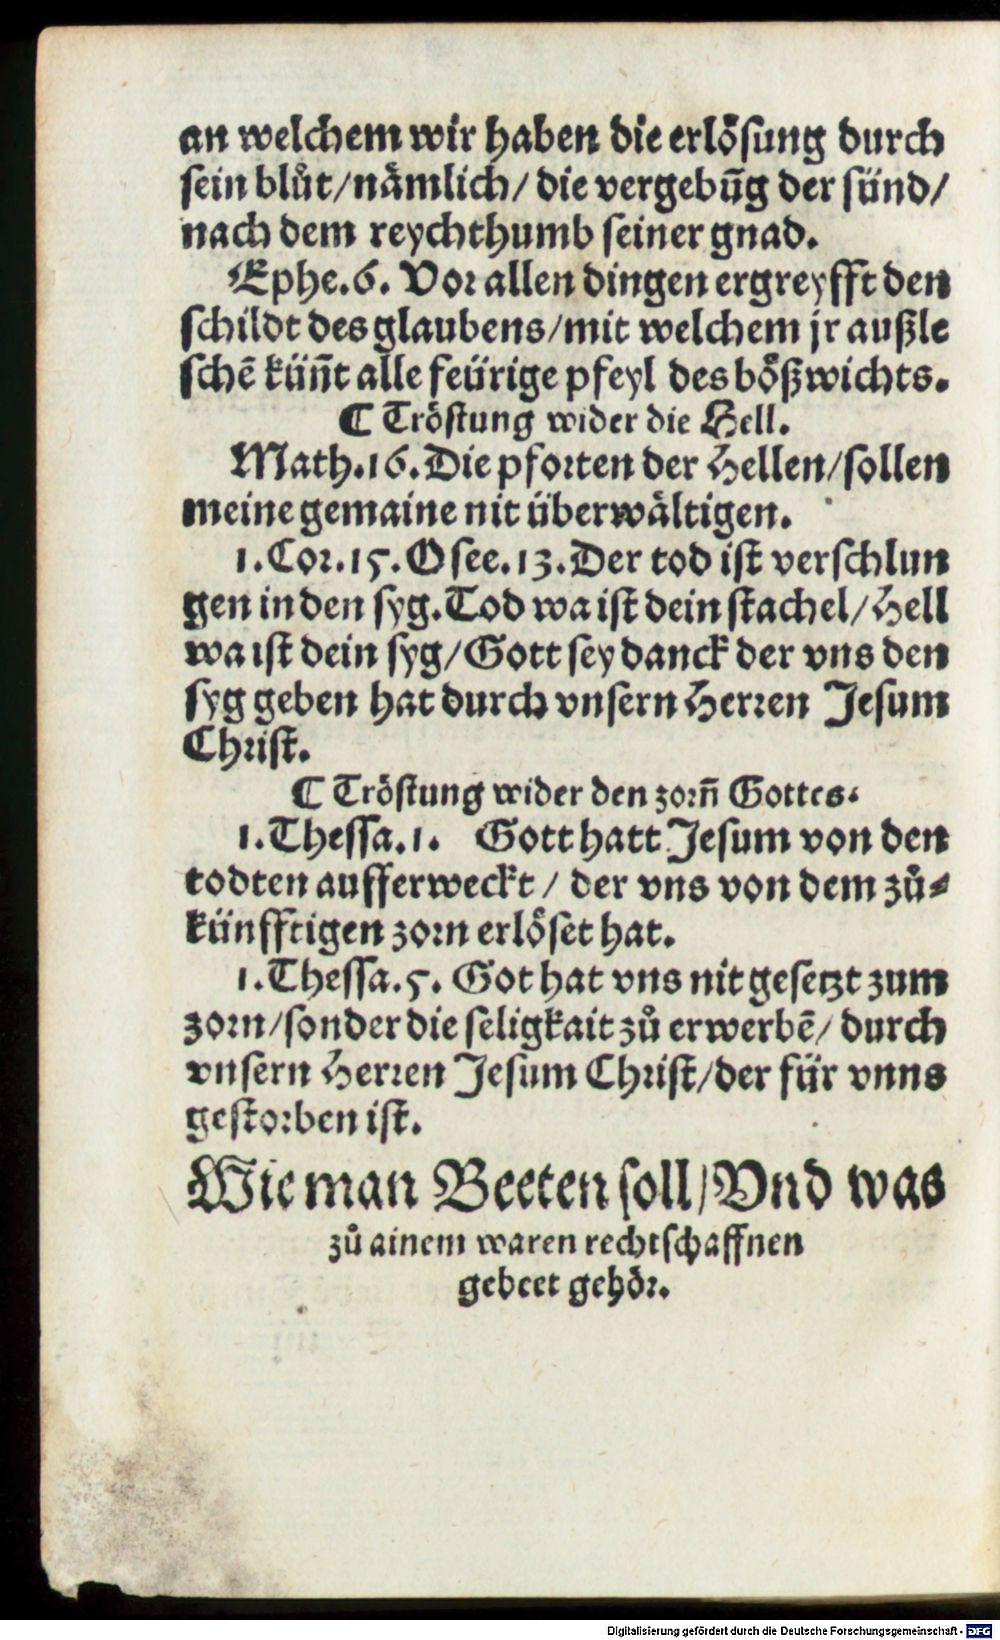 an welchem wir haben die erlösung durch
sein blůt/nämlich/ die vergebūg der sünd/
nach dem reychthumb seiner gnad.
Ephe.6. Vor allen dingen ergreyfft den
schildt des glaubens/mit welchem jr außle
schē küñt alle feürige pfeyl des bößwichts.
¶ Tröstung wider die Hell.
Math.16. Die pforten der Hellen/sollen
meine gemaine nit überwältigen.
1.Cor.15. Osee.13. Der tod ist verschlun
gen in den syg. Tod wa ist dein stachel/Hell
wa ist dein syg/Gott sey danck der vns den
syg geben hat durch vnsern Herren Jesum
Christ.
¶ Tröstung wider den zorñ Gottes.
1.Thessa.1. Gott hatt Jesum von den
todten aufferweckt / der vns von dem zů⸗
künfftigen zorn erlöset hat.
1.Thessa.5. Got hat vns nit gesetzt zum
zorn/sonder die seligkait zů erwerbē/ durch
vnsern Herren Jesum Christ/der für vnns
gestorben ist.
Wie man Beeten soll/Vnd was
zů ainem waren rechtschaffnen
gebeet gehör.
Digitalisierung gefördert durch die Deutsche Forschungsgemeinschaft - DFG